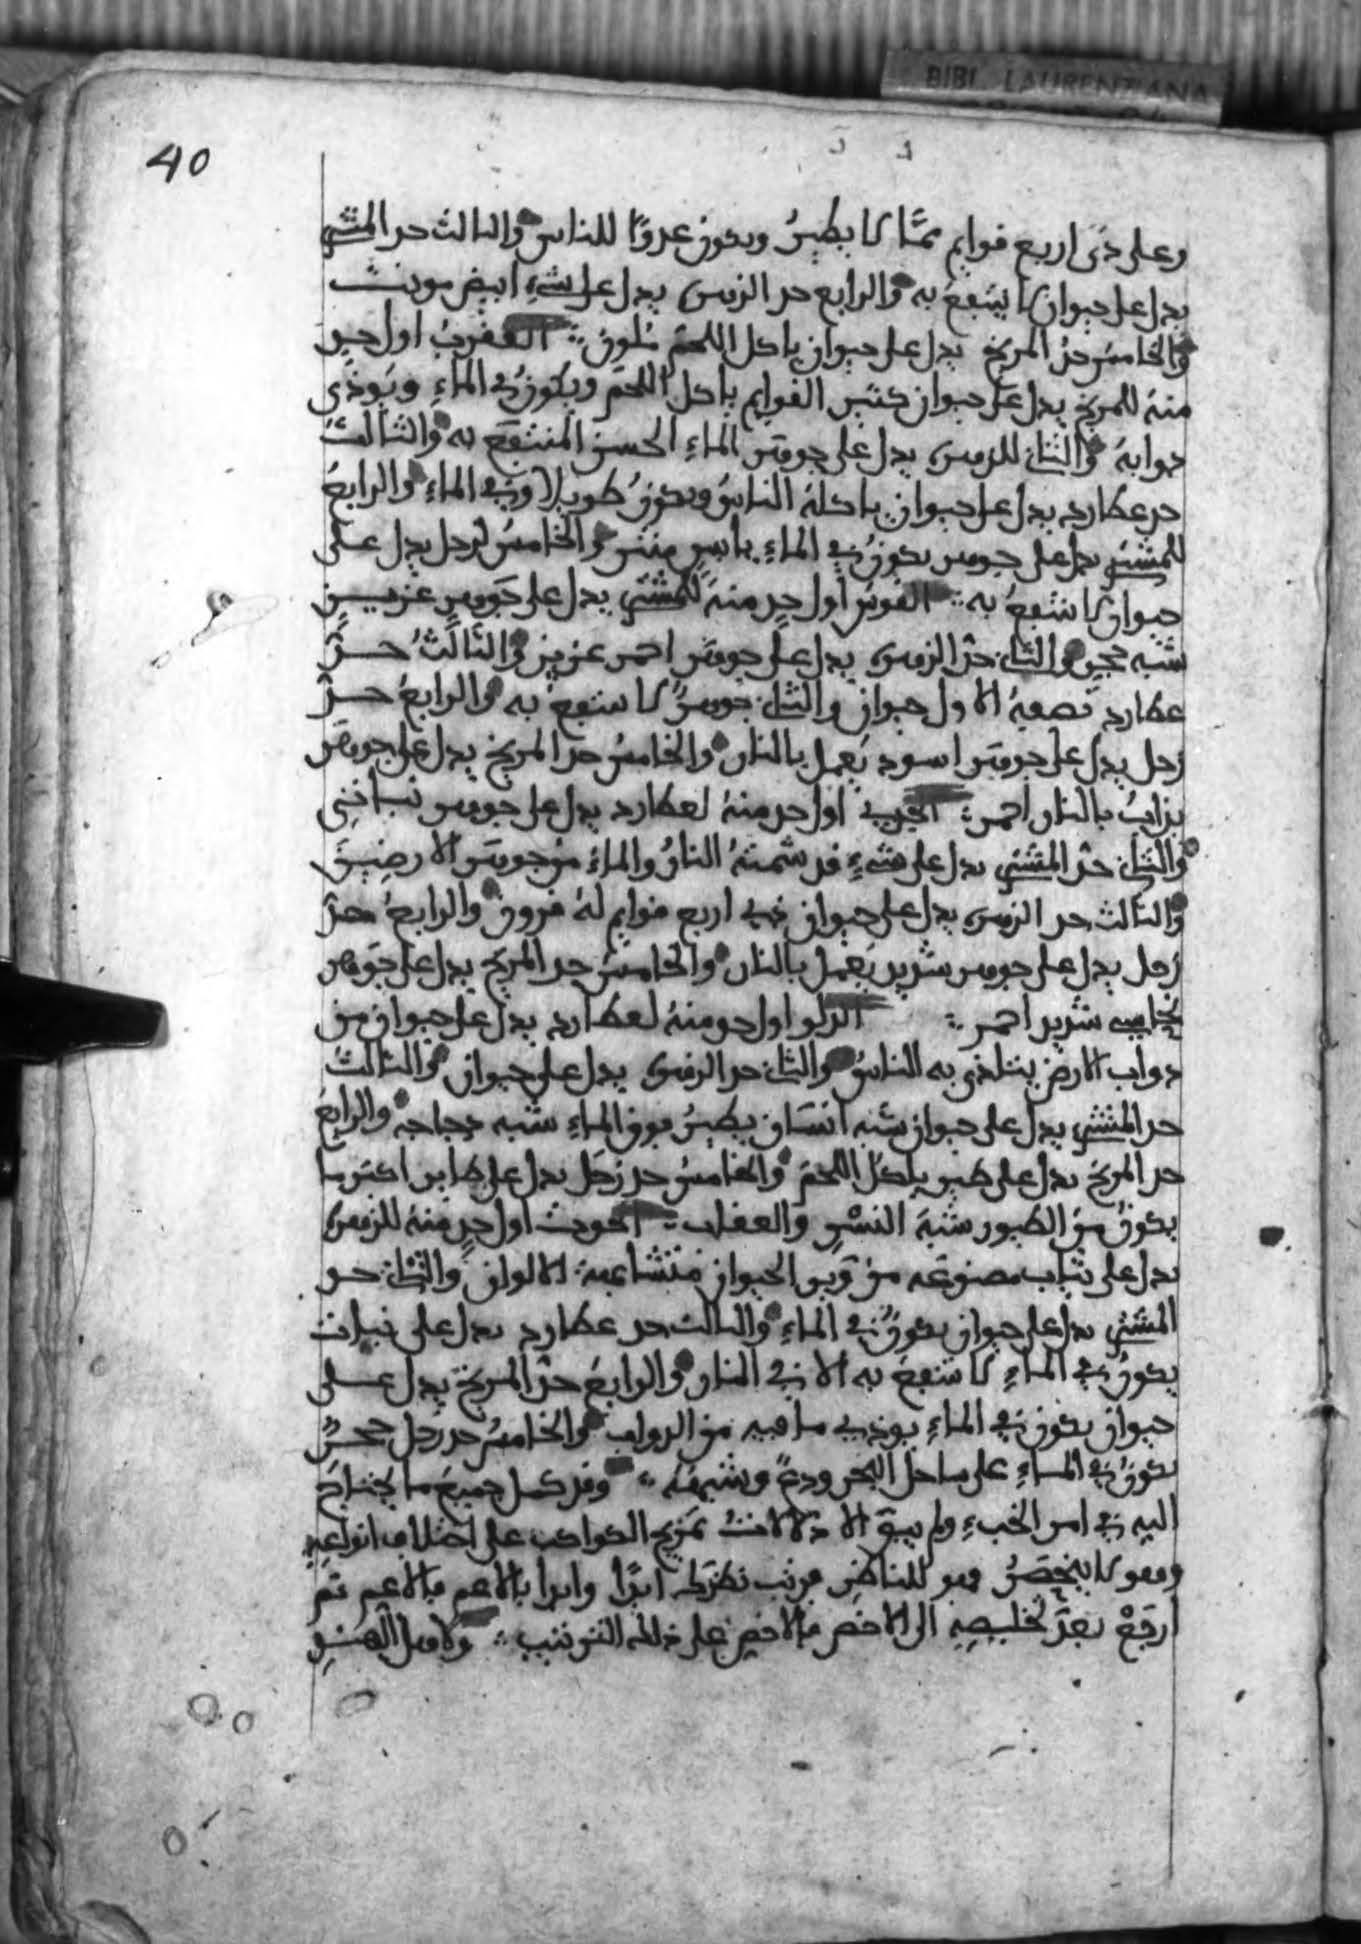 BIBL. LAURENZIANA
40
وعلى ذى اربع قوايم ممّا لا يطيرُ ويكون عدوّا للناس والثالث حد المشتري
يدل على حيوان لا ينتفع به والرابع حد الزهرى يدل على شيءٍ ابيض مونث
والخامس حدُ المريخ يدل على حيوان ياكل اللحم مُلون العقربُ اول حد
منهُ للمريخ يدل على حيوان كثير القوايم ياكل اللحم ويكون في الماءِ ويوذى
دوابهُ والثاني للزهرى يدل على جوهر الماءِ الحسن المنتفع به والثالثُ
حد عطارد يدل على حيوان ياكله الناسُ ويكونُ طويلا وفي الماءِ والرابعُ
للمشتري يدل على جوهر يكونُ في الماءِ يابسٍ منتن والخامسُ لزحل يدل على
حيوان لا ينتفعُ به القوسُ اول حدٍ منهُ للمشتري يدل على جوهرٍ عزيزٍ
شبه حجر والثاني حدّ الزهرى يدل على جوهر احمر عزيز والثالثُ حدّ
عطارد نصفهُ الاول حيوان والثاني جوهرٌ لا ينتفعُ به والرابعُ حدّ
زحل يدل على جوهر اسود يَعمل بالنار والخامس حد المريخ يدل على جوهر
يذابُ بالنار احمر الجدي اول حد منهُ لعطارد يدل على جوهر نباتي
والثاني حدّ المشتري يدل على شيءٍ قد شمتهُ النارُ والماءُ من جوهر الارضيق
والثالث حد الزهرى يدل على حيوان ذي اربع قوايم لهُ قرون والرابعُ حدّ
زحل يدل على جوهر شديد يَعمل بالنار والخامسُ حد المريخ يدل على جَوهر
نحاسي شديد احمر الدلو اول حد منهُ لعطارد يدل على حيوان من
دواب الارض يتاذى به الناسُ والثاني حد الزهرى يدل على حيوان والثالثُ
حد المشتري يدل على حيوان شبه انسان يطيرُ فوق الماءِ شبه دجاجه والرابعُ
حد المريخ يدل على طير ياكل اللحم والخامسُ حد زحل يدل على طاير اكثر ما
يكونُ من الطيور شبهَ النسْرِ والعقاب الحوت اول حدٍ منهُ للزهرى
يدل على ثياب مصنوعه من وَبر الحيوان متشابهة الالوان والثاني حد
المشتري يدل على حيوان يكونُ في الماءِ والثالث حد عطارد يدل على نبات
يكونُ في الماءِ لا ينتفعُ به الا في النار والرابعُ حدّ المريخ يدل على
حيوان يكون في الماءِ يوذي ما فيه من الدواب والخامسُ حد زحل حجرٌ
يكونُ في الماءِ على ساحل البحر ودعٌ وشبههُ وقد كمل جميع ما يحتاج
اليهِ في امر الخبءِ ولم يبق الا دلالاتُ تمزيج الكواكب على اختلاف انواعِهِ
وهو لا ينحصرُ وهو للناظر مرتب نظرك ابدًا وابدا بالاعم فالاعم ثم
ارجَعْ بعدَ تخليصِهِ الى الاخص فالاخص على ذلك الترتيب